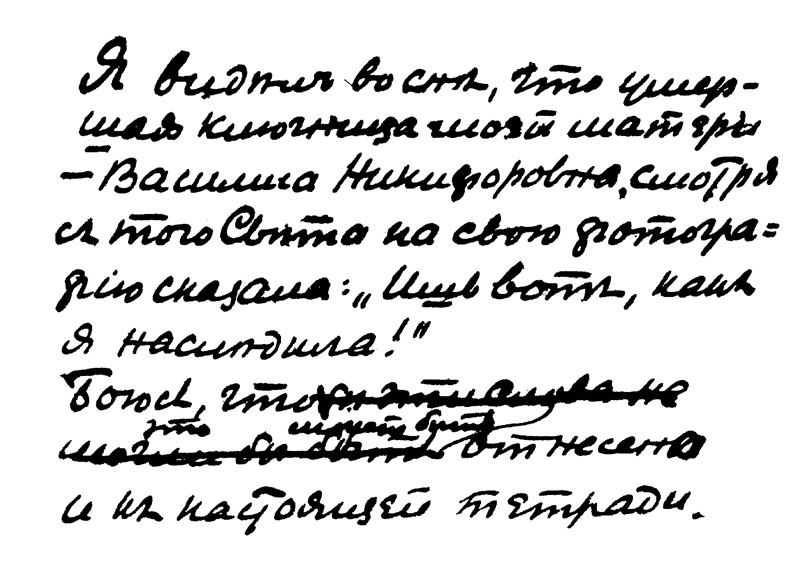 Я видѣлъ во снѣ, что умер-
шая ключница моей матери
— Василиса Никифоровна, смотря
съ того Свѣта на свою фотогра=
фію сказала: „Ишь вотъ, какъ
я наслѣдила!"
Боюсь, что бы эти слова не
это можетъ быть
могли бы быть отнесены
и къ настоящей тетради.